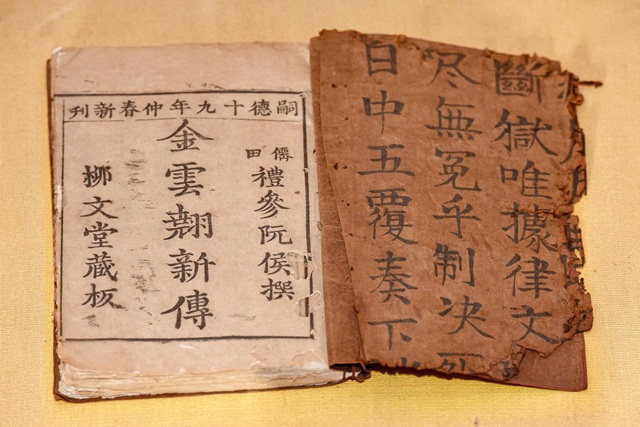 斷獄唯據律文
尽無冤乎制决
日中五覆奏下
嗣德十九年仲春新刊
僊田
禮參阮侯撰
金雲翹新傳
柳文堂藏板